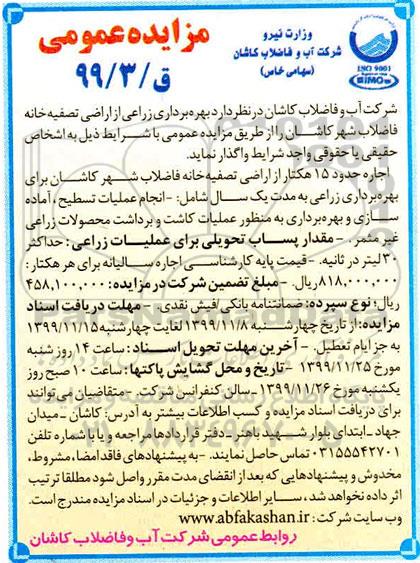 مزایده عمومی
ق/۹۹/۳
وزارت نیرو
شرکت آب و فاضلاب کاشان
(سهامی خاص)
ISO 9001
IMQ
شرکت آب و فاضلاب کاشان در نظر دارد بهره برداری زراعی از اراضی تصفیه خانه
فاضلاب شهر کاشان را از طریق مزایده عمومی با شرایط ذیل به اشخاص
حقیقی یا حقوقی واجد شرایط واگذار نماید.
اجاره حدود ۱۵ هکتار از اراضی تصفیه خانه فاضلاب شهر کاشان برای
بهره برداری زراعی به مدت یک سال شامل: -انجام عملیات تسطیح، آماده
سازی و بهره برداری به منظور عملیات کاشت و برداشت محصولات زراعی
غیر مثمر. - مقدار پساب تحویلی برای عملیات زراعی: حداکثر
۳۰ لیتر در ثانیه. -قیمت پایه کارشناسی اجاره سالیانه برای هر هکتار:
۸۱۸,۰۰۰,۰۰۰ ریال. - مبلغ تضمین شرکت در مزایده: ۴۵۸,۱۰۰,۰۰۰
ریال؛ نوع سپرده: ضمانتنامه بانکی/فیش نقدی. - مهلت دریافت اسناد
مزایده: از تاریخ چهارشنبه ۱۳۹۹/۱۱/۸ لغایت چهارشنبه ۱۳۹۹/۱۱/۱۵
به جز ایام تعطیل. - آخرین مهلت تحویل اسناد: ساعت ۱۴ روز شنبه
مورخ ۱۳۹۹/۱۱/۲۵ - تاریخ و محل گشایش پاکتها: ساعت ۱۰ صبح روز
یکشنبه مورخ ۱۳۹۹/۱۱/۲۶ -سالن کنفرانس شرکت - متقاضیان می توانند
برای دریافت اسناد مزایده و کسب اطلاعات بیشتر به آدرس: کاشان - میدان
جهاد- ابتدای بلوار شهید باهنر - دفتر قراردادها مراجعه و یا با شماره تلفن
۰۳۱۵۵۵۴۲۷۰۱ تماس حاصل نمایند. -به پیشنهادهای فاقد امضا، مشروط،
مخدوش و پیشنهادهایی که بعد از انقضای مدت مقرر واصل شود مطلقا ترتیب
اثر داده نخواهد شد، سایر اطلاعات و جزئیات در اسناد مزایده مندرج است.
وب سایت شرکت: www.abfakashan.ir
روابط عمومی شرکت آب و فاضلاب کاشان